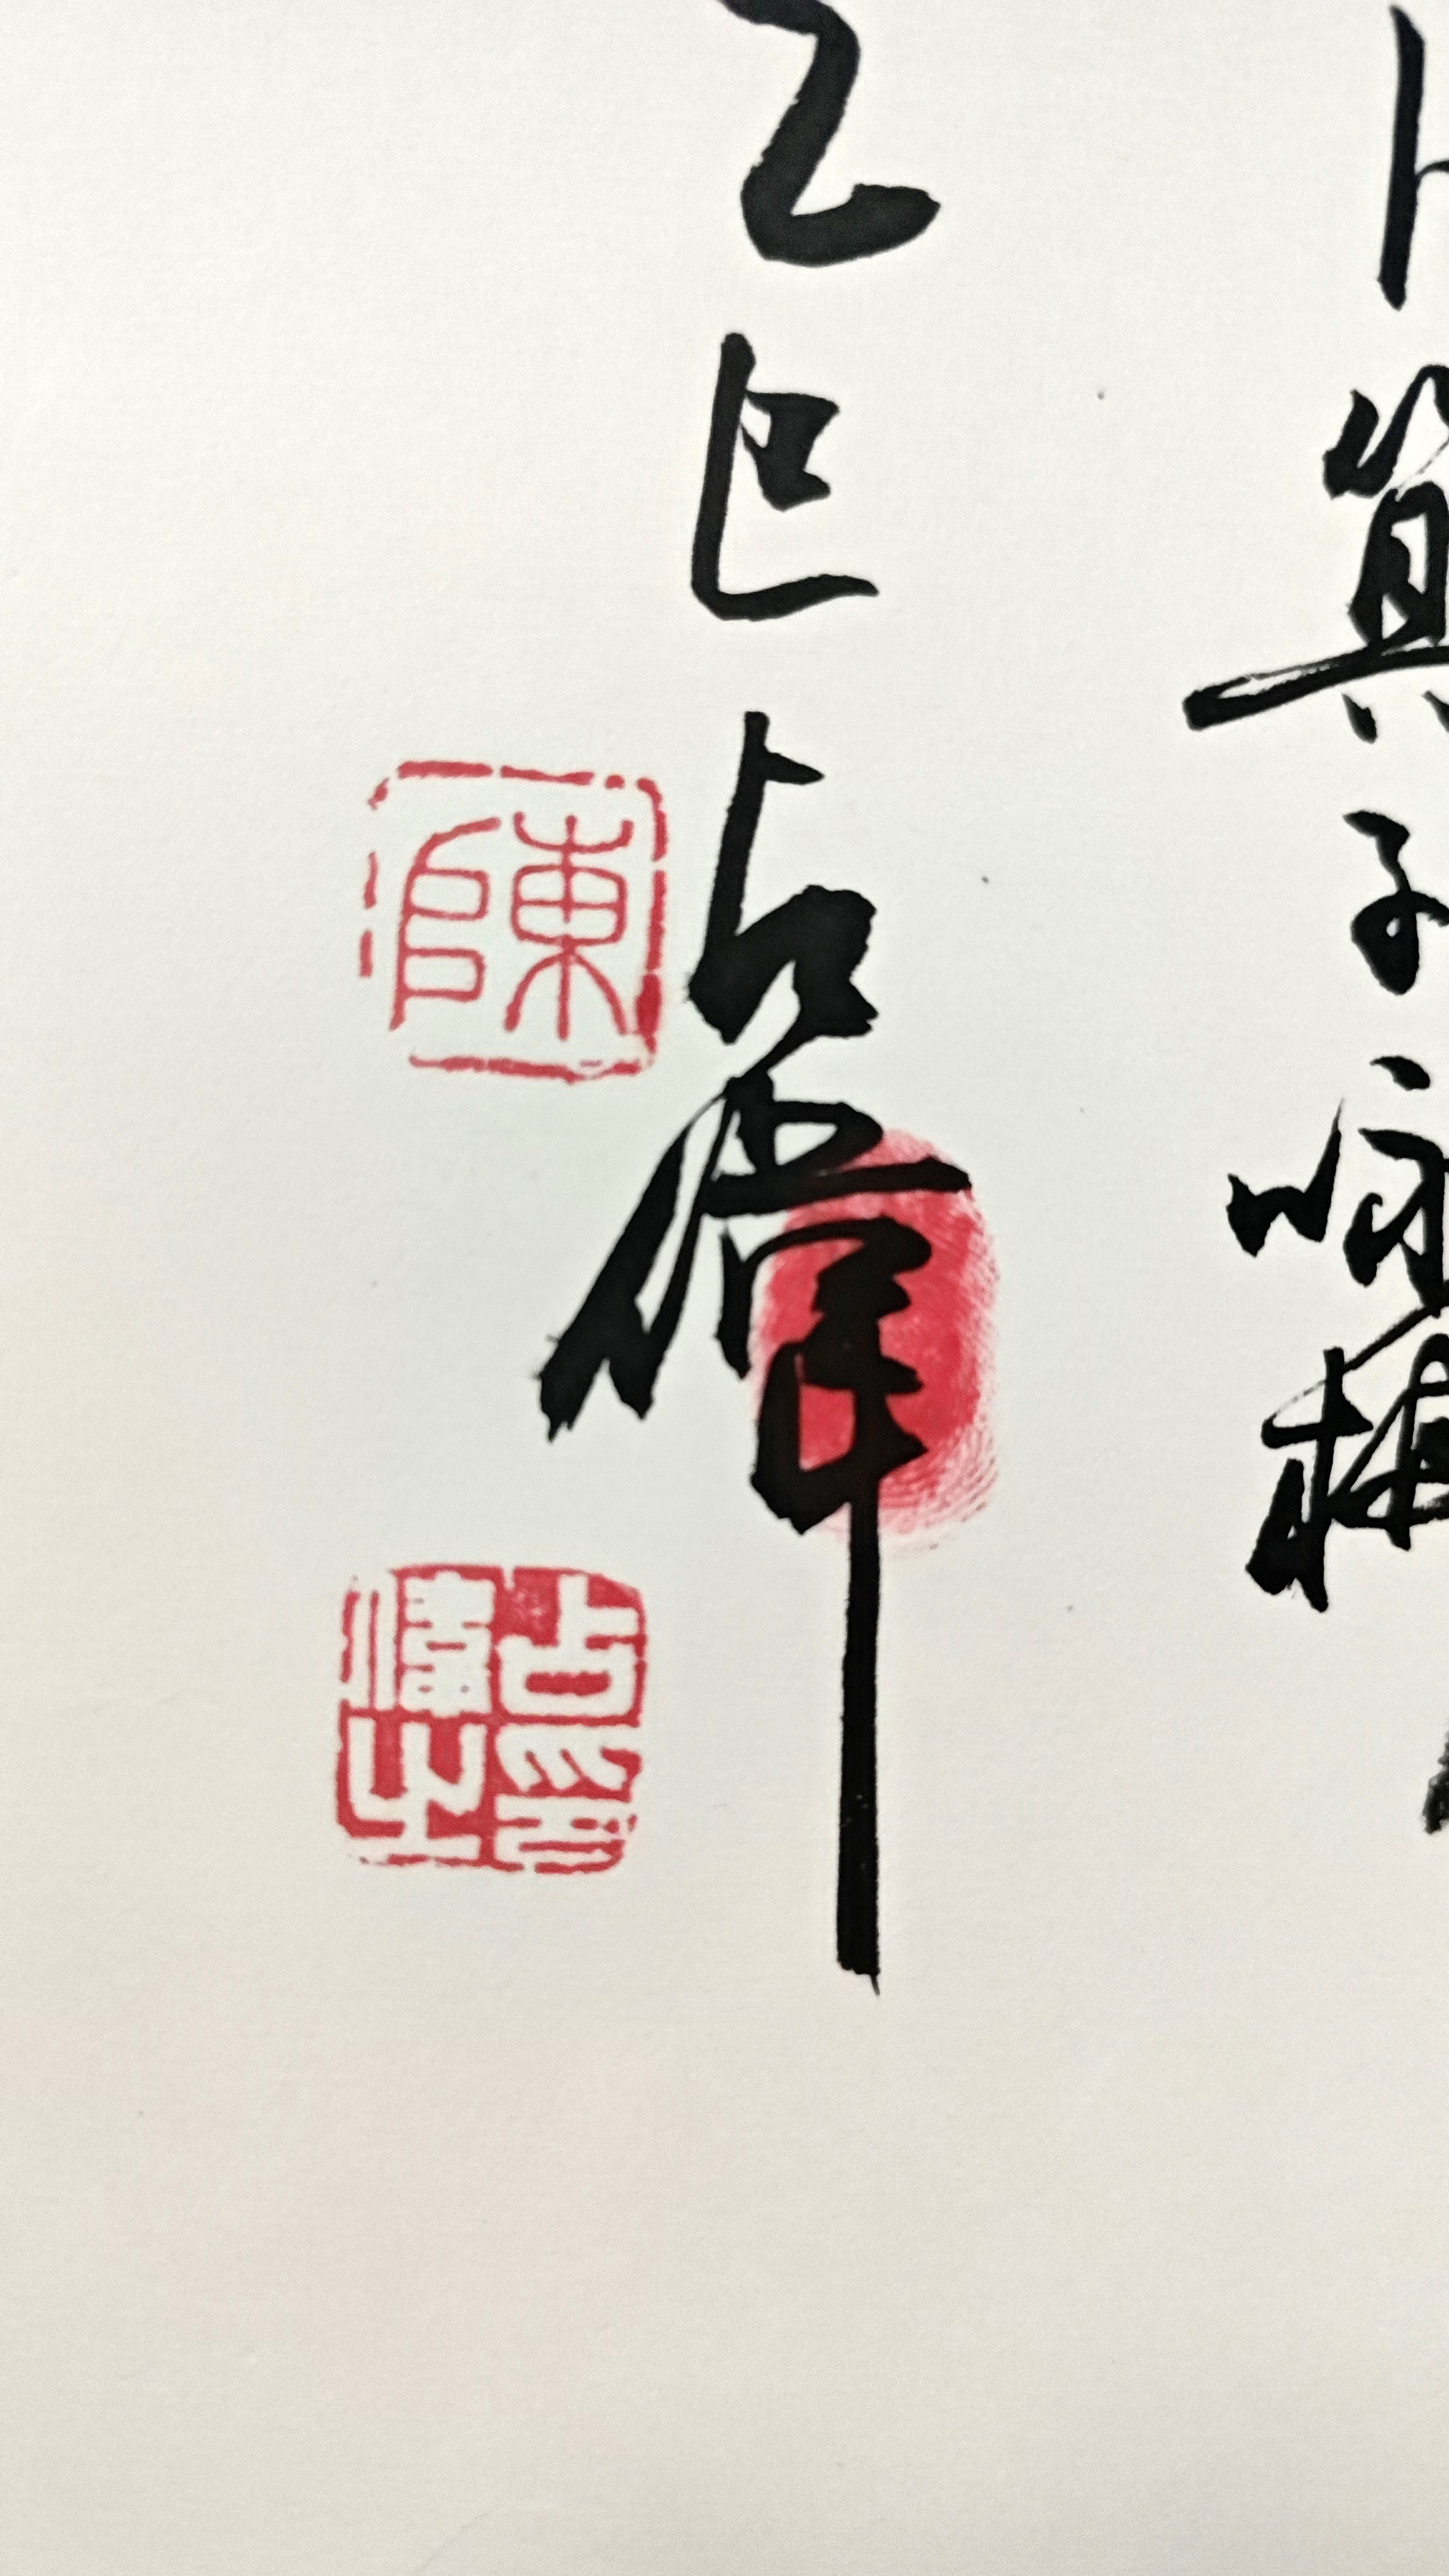 卜算子咏梅
乙巳占偉
陳
占偉之印